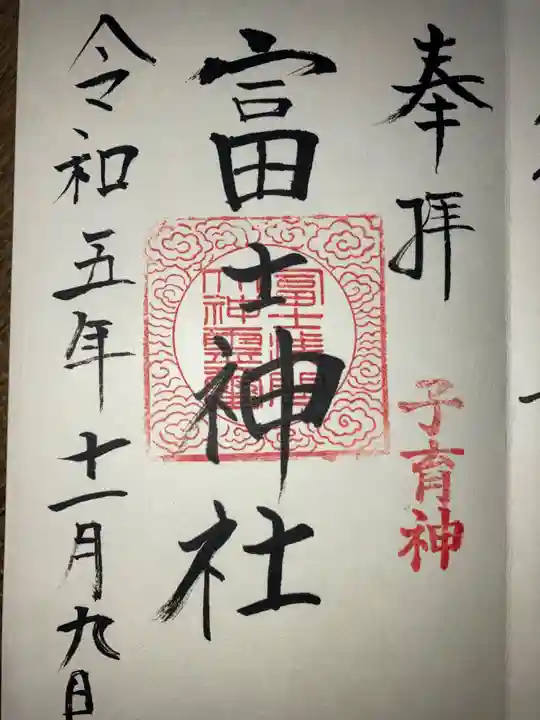 奉拝
子育神
富士神社
令和五年十一月九日